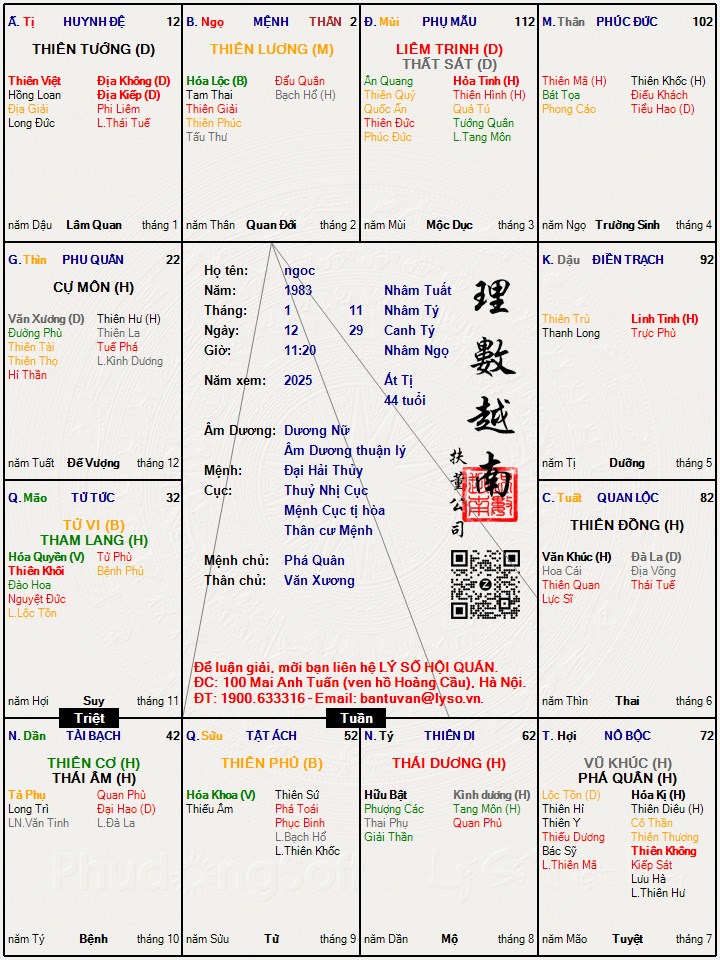 Ấ. Tị HUYNH ĐỆ 12
THIÊN TƯỚNG (D)
Thiên Việt Địa Không (D)
Hồng Loan Địa Kiếp (D)
Địa Giải Phi Liêm
Long Đức L.Thái Tuế
năm Dậu Lâm Quan tháng 1
B. Ngọ MỆNH THÂN 2
THIÊN LƯƠNG (M)
Hóa Lộc (B) Đẩu Quân
Tam Thai Bạch Hổ (H)
Thiên Giải
Thiên Phúc
Tấu Thư
năm Thân Quan Đới tháng 2
Đ. Mùi PHỤ MẪU 112
LIÊM TRINH (D)
THẤT SÁT (D)
Ân Quang Hỏa Tinh (H)
Thiên Quý Thiên Hình (H)
Quốc Ấn Quả Tú
Thiên Đức Tướng Quân
Phúc Đức L.Tang Môn
năm Mùi Mộc Dục tháng 3
M. Thân PHÚC ĐỨC 102
Thiên Mã (H) Thiên Khốc (H)
Bát Tọa Điếu Khách
Phong Cáo Tiểu Hao (D)
năm Ngọ Trường Sinh tháng 4
G. Thìn PHU QUÂN 22
CỰ MÔN (H)
Văn Xương (D) Thiên Hư (H)
Đường Phù Thiên La
Thiên Tài Tuế Phá
Thiên Thọ L.Kình Dương
Hỉ Thần
năm Tuất Đế Vượng tháng 12
Họ tên: ngoc
Năm: 1983 Nhâm Tuất
Tháng: 1 11 Nhâm Tý
Ngày: 12 29 Canh Tý
Giờ: 11:20 Nhâm Ngọ
Năm xem: 2025 Ất Tị
44 tuổi
Âm Dương: Dương Nữ
Âm Dương thuận lý
Mệnh: Đại Hải Thủy
Cục: Thuỷ Nhị Cục
Mệnh Cục tị hòa
Thân cư Mệnh
Mệnh chủ: Phá Quân
Thân chủ: Văn Xương
理數越南
扶董公司
Để luận giải, mời bạn liên hệ LÝ SỐ HỘI QUÁN.
ĐC: 100 Mai Anh Tuấn (ven hồ Hoàng Cầu), Hà Nội.
ĐT: 1900.633316 - Email: bantuvan@lyso.vn.
K. Dậu ĐIỀN TRẠCH 92
Thiên Trù Linh Tinh (H)
Thanh Long Trực Phù
năm Tị Dưỡng tháng 5
Q. Mão TỬ TỨC 32
TỬ VI (B)
THAM LANG (H)
Hóa Quyền (V) Tử Phù
Thiên Khôi Bệnh Phù
Đào Hoa
Nguyệt Đức
L.Lộc Tồn
năm Hợi Suy tháng 11
C. Tuất QUAN LỘC 82
THIÊN ĐỒNG (H)
Văn Khúc (H) Đà La (D)
Hoa Cái Địa Võng
Thiên Quan Thái Tuế
Lực Sĩ
năm Thìn Thai tháng 6
Triệt
Tuần
N. Dần TÀI BẠCH 42
THIÊN CƠ (H)
THÁI ÂM (H)
Tả Phụ Quan Phù
Long Trì Đại Hao (D)
LN.Văn Tinh L.Đà La
năm Tý Bệnh tháng 10
Q. Sửu TẬT ÁCH 52
THIÊN PHỦ (B)
Hóa Khoa (V) Thiên Sứ
Thiếu Âm Phá Toái
Phục Binh
L.Bạch Hổ
L.Thiên Khốc
năm Sửu Tử tháng 9
N. Tý THIÊN DI 62
THÁI DƯƠNG (H)
Hữu Bật Kình dương (H)
Phượng Các Tang Môn (H)
Thai Phụ Quan Phủ
Giải Thần
năm Dần Mộ tháng 8
T. Hợi NÔ BỘC 72
VŨ KHÚC (H)
PHÁ QUÂN (H)
Lộc Tồn (D) Hóa Kị (H)
Thiên Hỉ Thiên Diêu (H)
Thiên Y Cô Thần
Thiếu Dương Thiên Thương
Bác Sỹ Thiên Không
L.Thiên Mã Kiếp Sát
Lưu Hà
L.Thiên Hư
năm Mão Tuyệt tháng 7